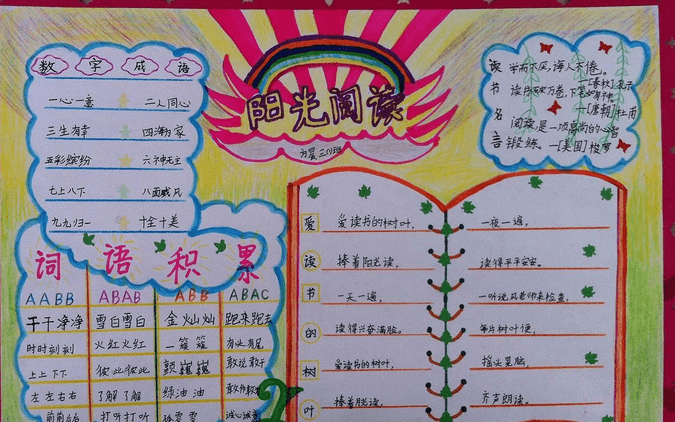 数字成语
一心一意 二人同心
三生有幸 四海为家
五彩缤纷 六神无主
七上八下 八面威风
九九归一 十全十美
阳光阅读
方晨 三(1)班
读书名言
学而不厌，诲人不倦。
—[春秋]孔子
读书破万卷，下笔如有神。
—[唐朝]杜甫
阅读是一项高尚的心智
锻练。—[美国]梭罗
词语积累
AABB ABAB ABB ABAC
干干净净 雪白雪白 金灿灿 跑来跑去
时时刻刻 火红火红 一簇簇 有头有尾
上上下下 彼此彼此 颤巍巍 敢说敢干
左左右右 了解了解 绿油油
打听打听 诚心诚意
爱读书的树叶
爱读书的树叶，
捧着阳光读，
一天一遍，
读得兴奋满脸。
爱读书的树叶，
捧着月光读，
一夜一遍，
读得平平安安。
一听说风老师来检查，
每片树叶便，
摇头晃脑，
齐声朗读。